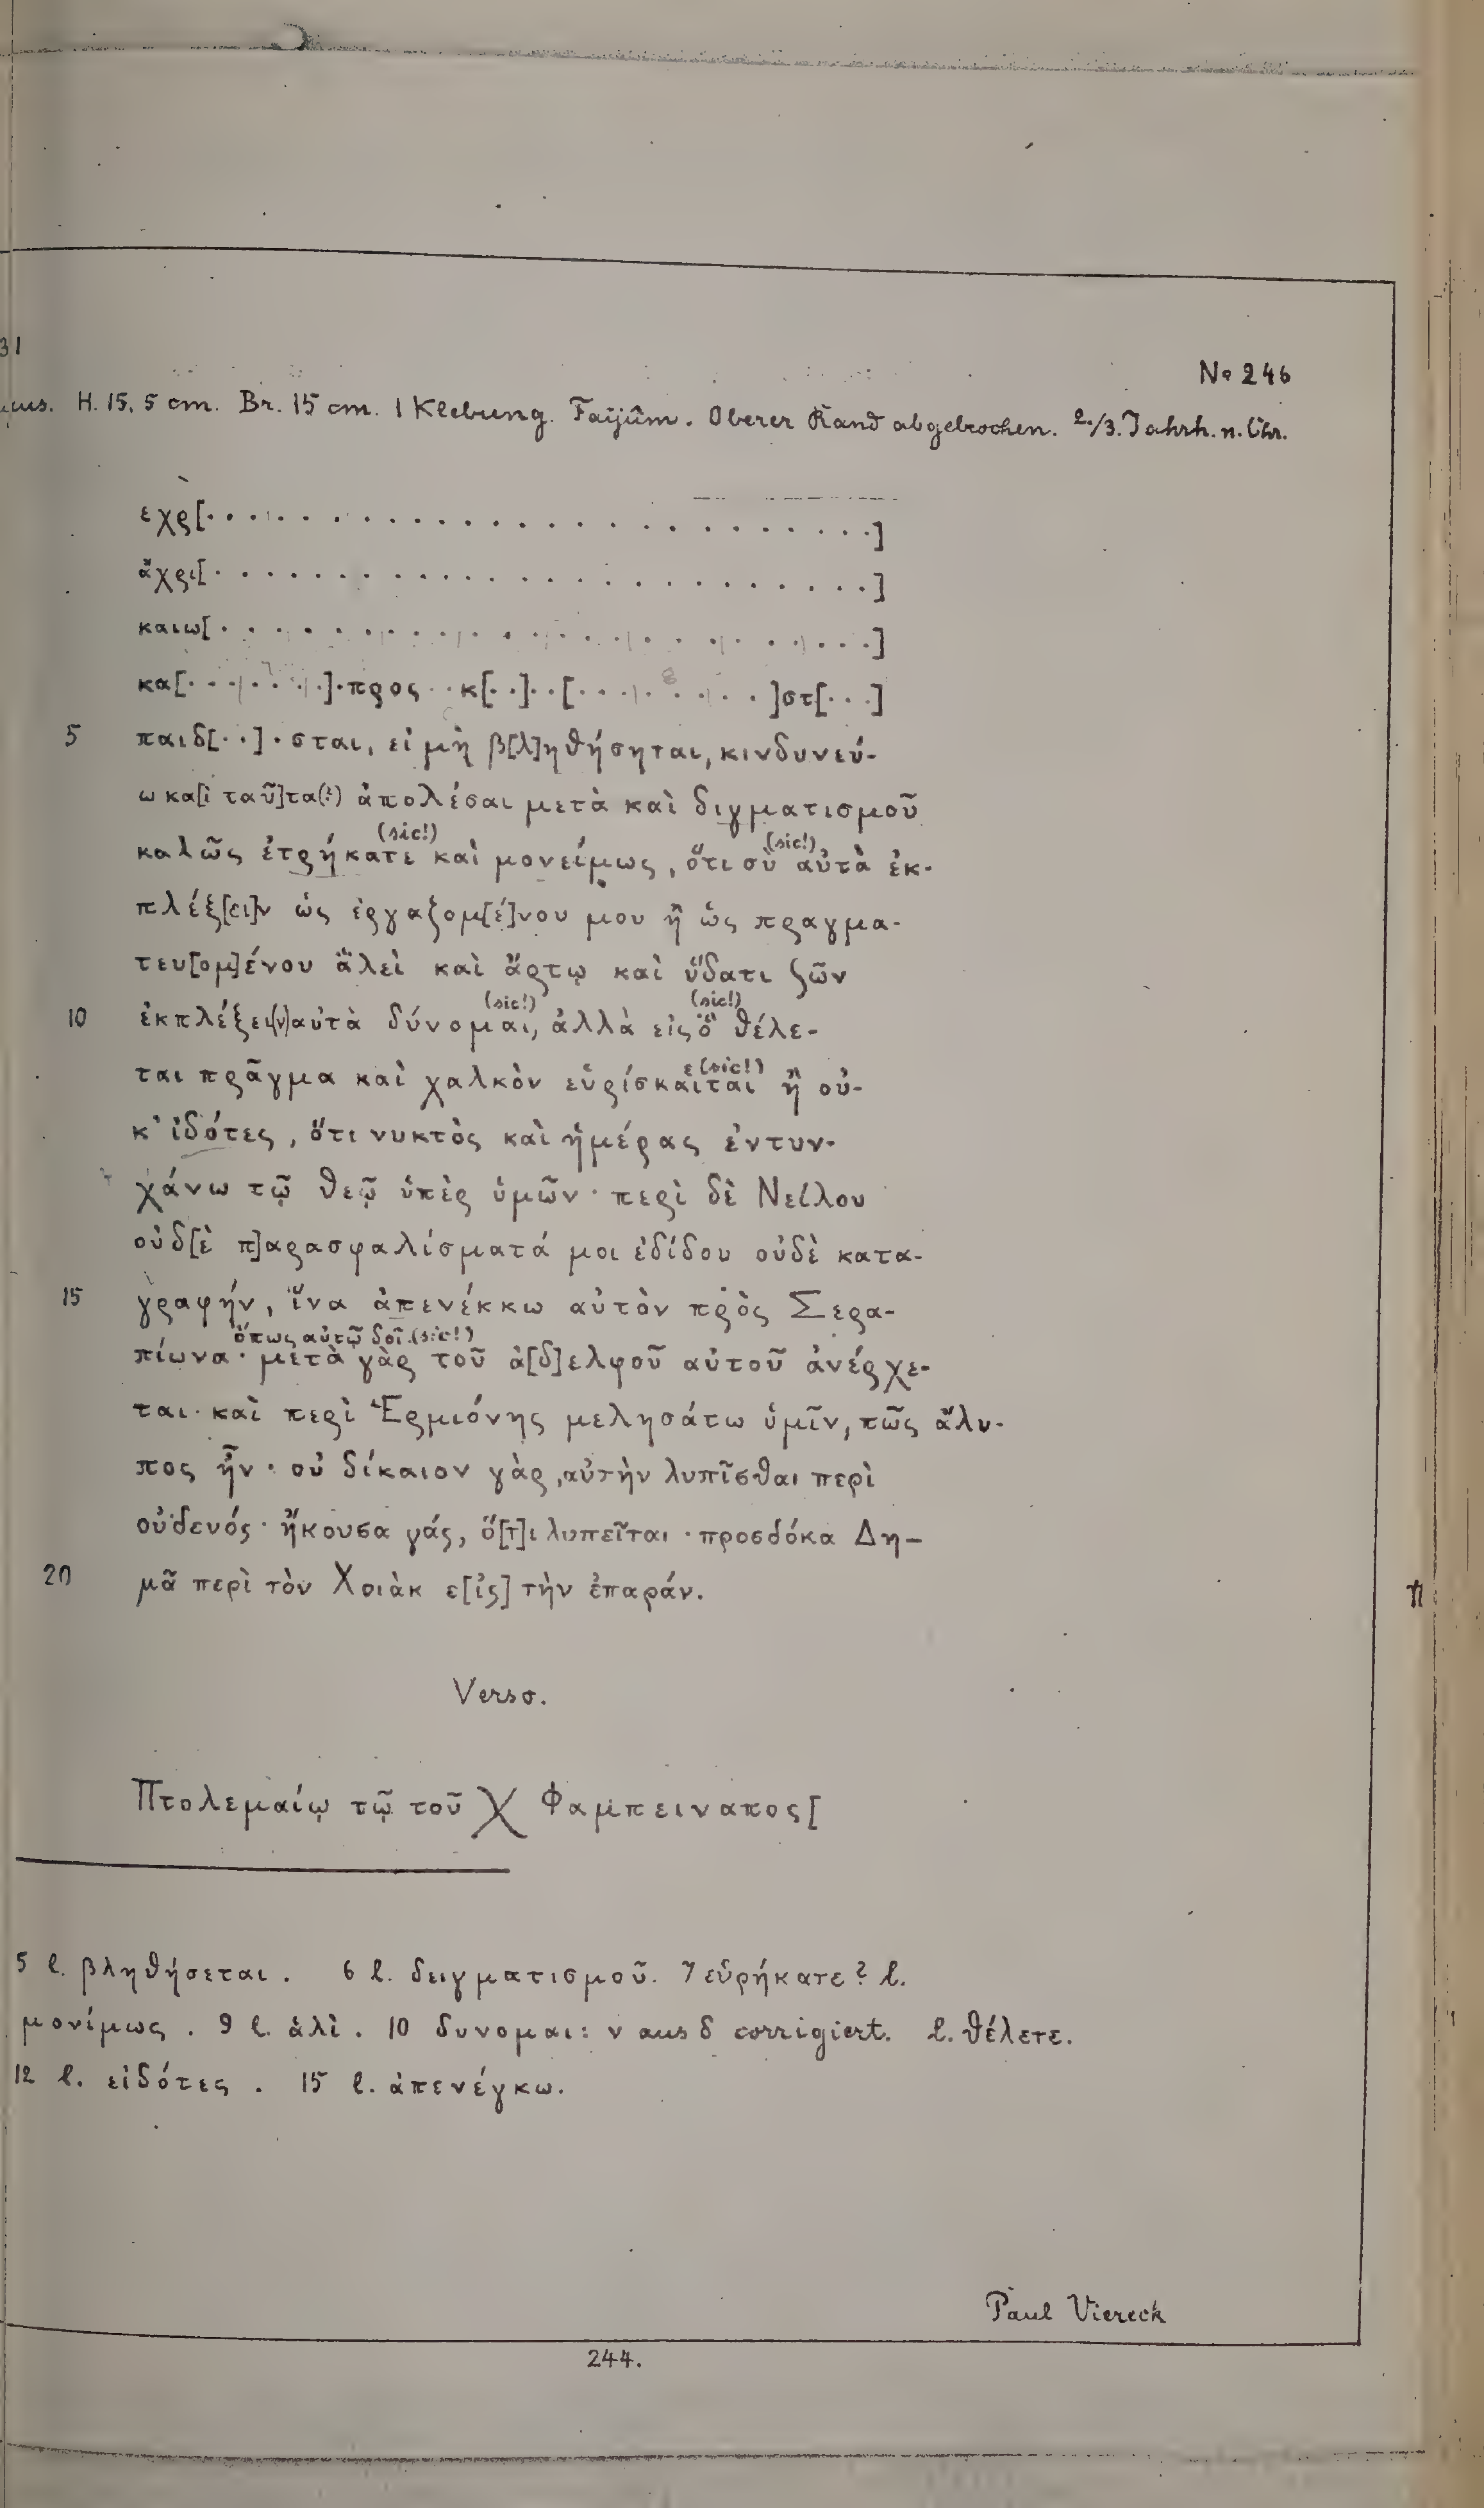 31
No 246
H. 15,5 cm. Br. 15 cm. 1 Klebung. Faijûm. Oberer Rand abgebrochen. 2./3. Jahrh. n. Chr.
εχρ[· · · · · · · · · · · · · · · · · · · · · · · ·]
ἄχρι[· · · · · · · · · · · · · · · · · · · · · · ·]
καιω[· · · · · · · · · · · · · · · · · · · · · · ·]
κα[· · · · · · ·]·προς · · κ[· ·]· ·[· · · · · · · ·]στ[· · ·]
5 παιδ[· ·]·σται, εἰ μὴ β[λ]ηθήσηται, κινδυνεύ-
ω κα[ὶ ταῦ]τα(?) ἀπολέσαι μετὰ καὶ διγματισμοῦ
(sic!) (sic!)
καλῶς ἑτρήκατε καὶ μονείμως, ὅτι σὺ αὐτὰ ἐκ-
πλέξ[ει]ν ὡς ἐργαζομ[έ]νου μου ἢ ὡς πραγμα-
τευ[ομ]ένου ἅλεὶ καὶ ἄρτῳ καὶ ὕδατι ζῶν
(sic!) (sic!)
10 ἐκπλέξει(ν) αὐτὰ δύνομαι, ἀλλὰ εἰς ὃ θέλε-
ε(sic!)
ται πρᾶγμα καὶ χαλκὸν εὑρίσκαιται ἢ οὐ-
κ᾽ ἰδότες, ὅτι νυκτὸς καὶ ἡμέρας ἐντυν-
χάνω τῷ θεῷ ὑπὲρ ὑμῶν· περὶ δὲ Νείλου
οὐδ[ὲ π]αρασφαλίσματά μοι ἐδίδου οὐδὲ κατα-
15 γραφήν, ἵνα ἀπενέκκω αὐτὸν πρὸς Σερα-
ὅπως αὐτῷ δοῖ (sic!)
πίωνα· μετὰ γὰρ τοῦ ἀ[δ]ελφοῦ αὐτοῦ ἀνέρχε-
ται· καὶ περὶ Ἑρμιόνης μελησάτω ὑμῖν, πῶς ἄλυ-
πος ἦν· οὐ δίκαιον γὰρ, αὐτὴν λυπῖσθαι περὶ
οὐδενός· ἤκουσα γάς, ὅ[τ]ι λυπεῖται· προσδόκα Δη-
20 μᾶ περὶ τὸν Χοιὰκ ε[ἰς] τὴν ἐπαράν.
Verso.
Πτολεμαίῳ τῷ τοῦ Χ Φαμπειναπος[
5 l. βληθήσεται. 6 l. δειγματισμοῦ. 7 εὑρήκατε? l.
μονίμως. 9 l. ἁλὶ. 10 δυνομαι: ν aus δ corrigiert. l. θέλετε.
12 l. εἰδότες. 15 l. ἀπενέγκω.
Paul Viereck
244.